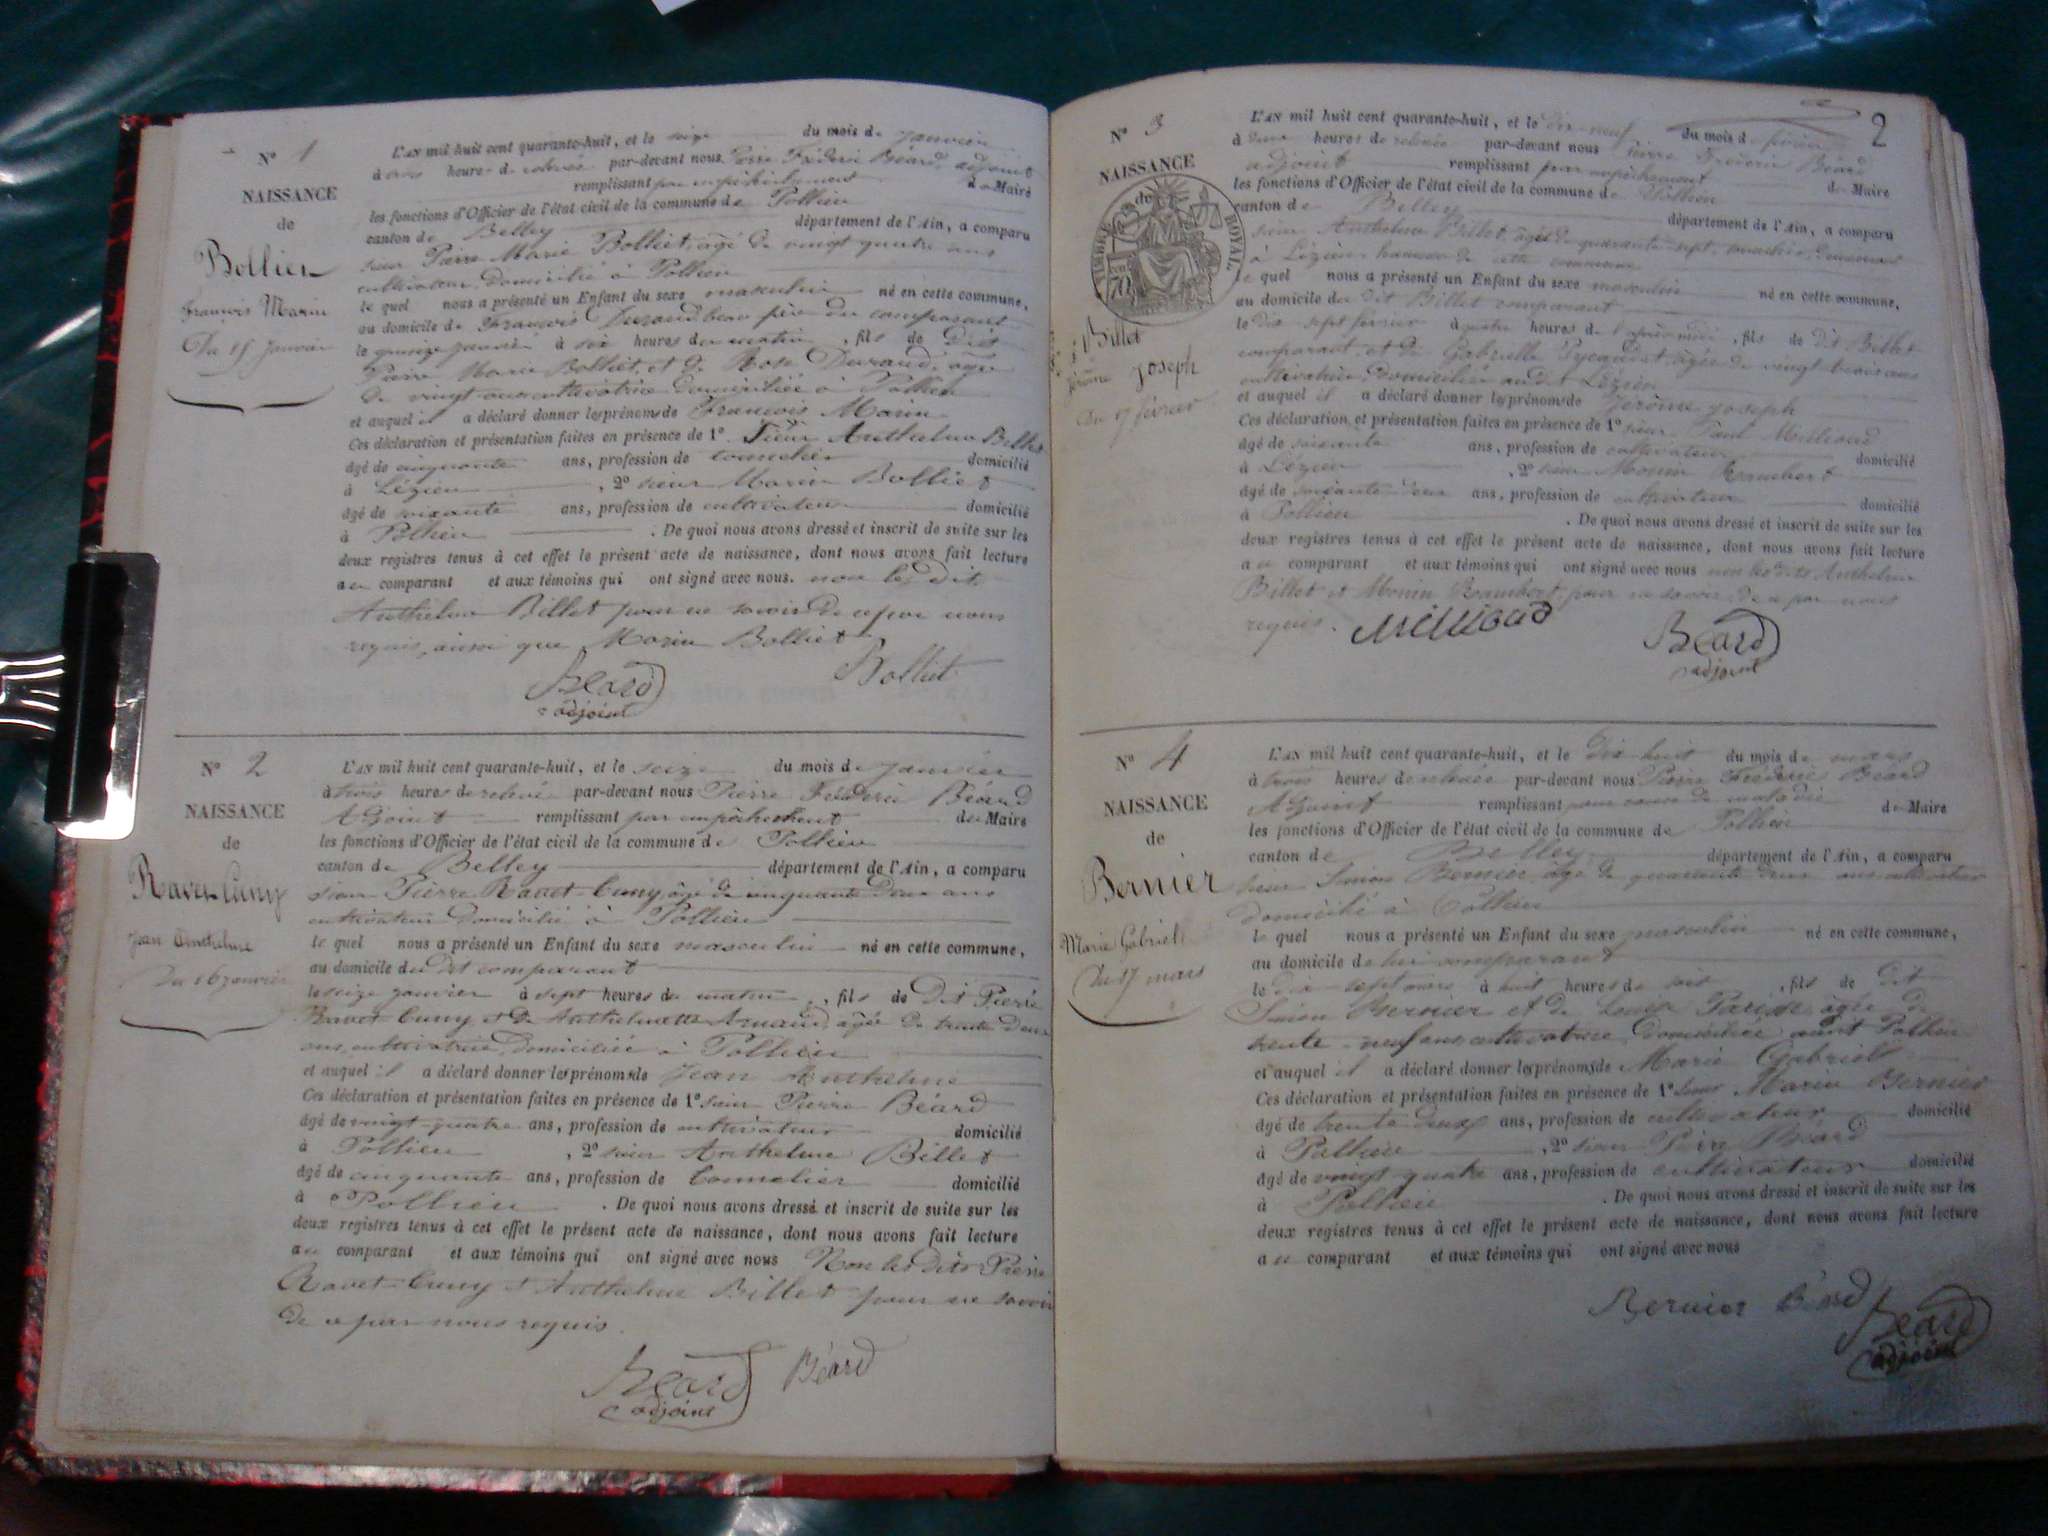 N° 1
NAISSANCE
de
Bollier
François Marin
Du 15 Janvier
L'AN mil huit cent quarante-huit, et le seize du mois de Janvier
à trois heures de relevée par-devant nous Pierre Fréderic Béard, adjoint
remplissant par empêchement du Maire
les fonctions d'Officier de l'état civil de la commune de Pollieu
canton de Belley département de l'Ain, a comparu
sieur Pierre Marie Bolliet, âgé de vingt quatre ans
cultivateur, domicilié à Pollieu
le quel nous a présenté un Enfant du sexe masculin né en cette commune,
au domicile de François Durand beau père du comparant
le quinze janvier à six heures du matin, fils de dit
Pierre Marie Bolliet, et de Rose Durand, âgée
de vingt ans cultivatrice domiciliée à Pollieu
et auquel il a déclaré donner les prénoms de François Marin
Ces déclaration et présentation faites en présence de 1° Sieur Anthelme Billet
âgé de cinquante ans, profession de tonnelier domicilié
à Lézieu, 2° sieur Marin Bolliet
âgé de soixante ans, profession de cultivateur domicilié
à Pollieu. De quoi nous avons dressé et inscrit de suite sur les
deux registres tenus à cet effet le présent acte de naissance, dont nous avons fait lecture
au comparant et aux témoins qui ont signé avec nous. non le dit
Anthelme Billet pour ne savoir de ce par nous
requis, aussi que Marin Bolliet
Béard Bolliet
adjoint
N° 2
NAISSANCE
de
Ravet-Cuny
Jean Anthelme
Du 16 janvier
L'AN mil huit cent quarante-huit, et le seize du mois de Janvier
à trois heures de relevée par-devant nous Pierre Fréderic Béard
Adjoint remplissant par empêchement du Maire
les fonctions d'Officier de l'état civil de la commune de Pollieu
canton de Belley département de l'Ain, a comparu
sieur Pierre Ravet-Cuny, âgé de cinquante deux ans
cultivateur domicilié à Pollieu
le quel nous a présenté un Enfant du sexe masculin né en cette commune,
au domicile du dit comparant
le seize janvier à sept heures du matin, fils de Dit Pierre
Ravet Cuny et de Anthelmette Arnaud, âgée de trente deux
ans, cultivatrice, domiciliée à Pollieu
et auquel il a déclaré donner les prénoms de Jean Anthelme
Ces déclaration et présentation faites en présence de 1° sieur Pierre Béard
âgé de vingt-quatre ans, profession de cultivateur domicilié
à Pollieu, 2° sieur Anthelme Billet
âgé de cinquante ans, profession de Tonnelier domicilié
à Pollieu. De quoi nous avons dressé et inscrit de suite sur les
deux registres tenus à cet effet le présent acte de naissance, dont nous avons fait lecture
au comparant et aux témoins qui ont signé avec nous Non les dits Pierre
Ravet-Cuny et Anthelme Billet pour ne savoir
de ce par nous requis.
Béard Béard
adjoint
2
N° 3
NAISSANCE
de
TIMBRE ROYAL
70
Billet
Jérome Joseph
Du 17 février
L'AN mil huit cent quarante-huit, et le dix-neuf du mois de février
à deux heures de relevée par-devant nous Pierre Fréderic Béard
adjoint remplissant par empêchement du Maire
les fonctions d'Officier de l'état civil de la commune de Pollieu
canton de Belley département de l'Ain, a comparu
sieur Anthelme Billet, âgé de quarante sept,
à Lézieu hameau de cette commune
le quel nous a présenté un Enfant du sexe masculin né en cette commune,
au domicile du dit Billet comparant
le dix sept février à quatre heures de l'après midi, fils de dit Billet
comparant, et de Gabrielle âgée de vingt trois ans
cultivatrice, domiciliée au dit Lézieu
et auquel il a déclaré donner les prénoms de Jérôme Joseph
Ces déclaration et présentation faites en présence de 1° sieur Paul Millioud
âgé de soixante ans, profession de cultivateur domicilié
à Lézieu, 2° sieur Monin Rambert
âgé de soixante deux ans, profession de cultivateur domicilié
à Pollieu. De quoi nous avons dressé et inscrit de suite sur les
deux registres tenus à cet effet le présent acte de naissance, dont nous avons fait lecture
au comparant et aux témoins qui ont signé avec nous non les dits Anthelme
Billet et Monin Rambert, pour ne savoir de ce par nous
requis. Millioud Béard
adjoint
N° 4
NAISSANCE
de
Bernier
Marie Gabriel
Du 17 mars
L'AN mil huit cent quarante-huit, et le dix huit du mois de mars
à trois heures de relevée par-devant nous Pierre Fréderic Béard
Adjoint remplissant pour cause de maladie du Maire
les fonctions d'Officier de l'état civil de la commune de Pollieu
canton de Belley département de l'Ain, a comparu
sieur Simon Bernier, âgé de quarante deux ans cultivateur
domicilié à Pollieu
le quel nous a présenté un Enfant du sexe masculin né en cette commune,
au domicile de lui comparant
le dix sept mars à huit heures du soir, fils de dit
Simon Bernier et de Louise âgée de
trente-neuf ans cultivatrice domiciliée audit Pollieu
et auquel il a déclaré donner les prénoms de Marie Gabriel
Ces déclaration et présentation faites en présence de 1° Sieur Marin Bernier
âgé de trente deux ans, profession de cultivateur domicilié
à Pollieu, 2° sieur Pierre Béard
âgé de vingt quatre ans, profession de cultivateur domicilié
à Pollieu. De quoi nous avons dressé et inscrit de suite sur les
deux registres tenus à cet effet le présent acte de naissance, dont nous avons fait lecture
au comparant et aux témoins qui ont signé avec nous
Bernier Béard Béard
adjoint